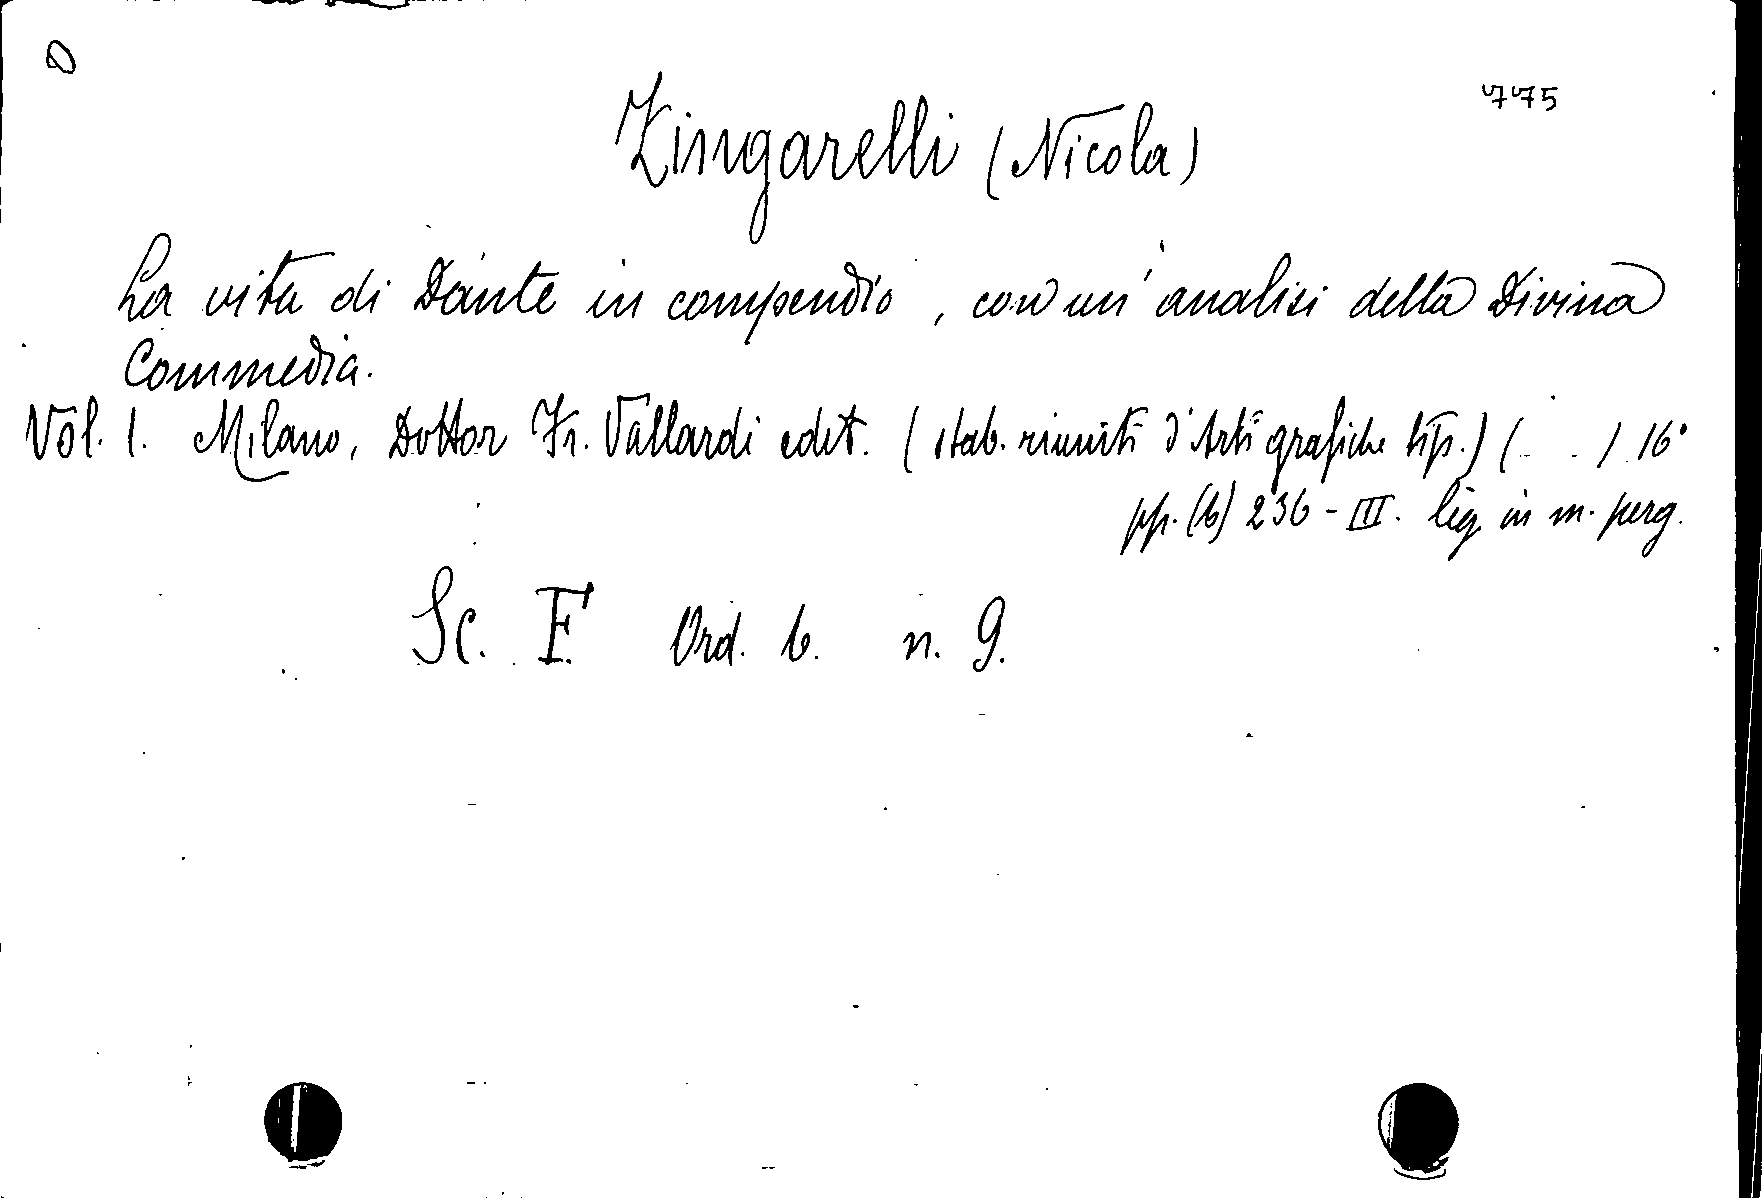 775
Zingarelli (Nicola)
La vita di Dante in compendio, con un' analisi della Divina
Commedia.
Vol. 1. Milano, Dottor Fr. Vallardi edit. (stab. riuniti d'Arti grafiche tip.) ( ) 16°
pp. (6) 236 - III. leg. in m. perg.
Sc. F. Ord. 6. n. 9.